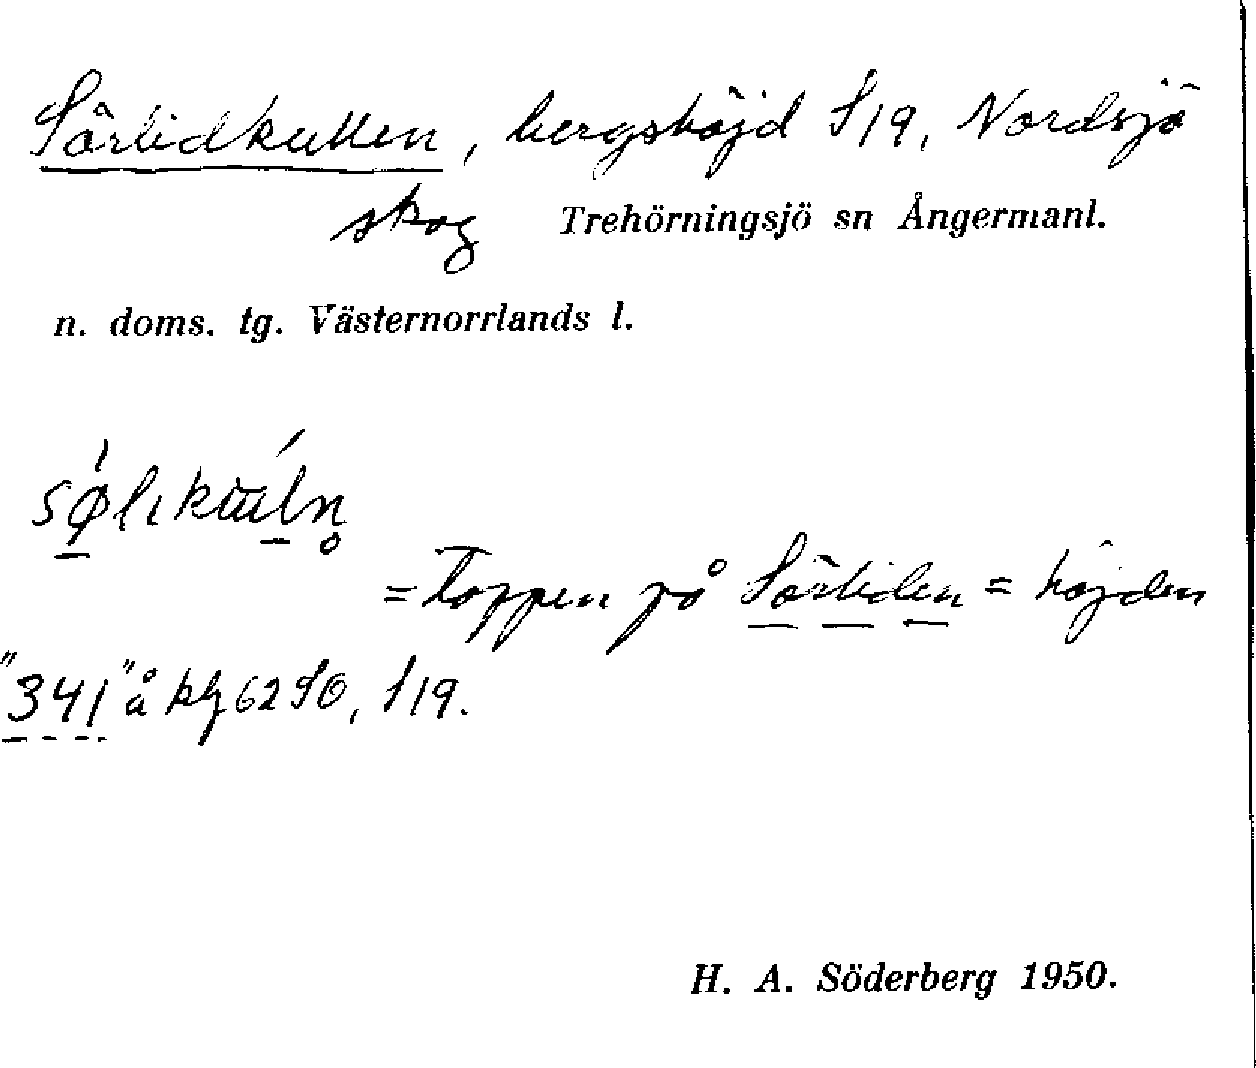 Sörlidkullen, bergshöjd S/19, Nordsjö
skog Trehörningsjö sn Ångermanl.
n. doms. tg. Västernorrlands l.
= toppen på Sörliden = höjden
"341" å kbl 62 SO, S/19.
H. A. Söderberg 1950.